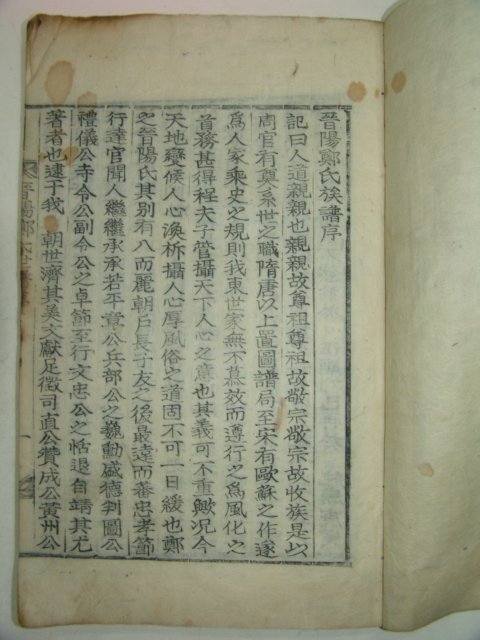 晉陽鄭氏族譜序
記曰人道親親也親親故尊祖尊祖故敬宗敬宗故收族是以
周官有奠系世之職隋唐以上置圖譜局至宋有歐蘇之作遂
爲人家乘史之規則我東世家無不慕效而遵行之爲風化之
首務甚得程夫子管攝天下人心之意也其義可不重歟况今
天地變候人心渙析攝人心厚風俗之道固不可一日緩也鄭
之晉陽氏其別有八而麗朝戶長子友之後最達而蕃忠孝節
行達官聞人繼繼承承若平章公兵部公之巍勳盛德判圖公
禮儀公寺令公副令公之卓節至行文忠公之恬退自靖其尤
著者也逮于我 朝世濟其美文獻足徵司直公贊成公黃州公
晉陽鄭氏